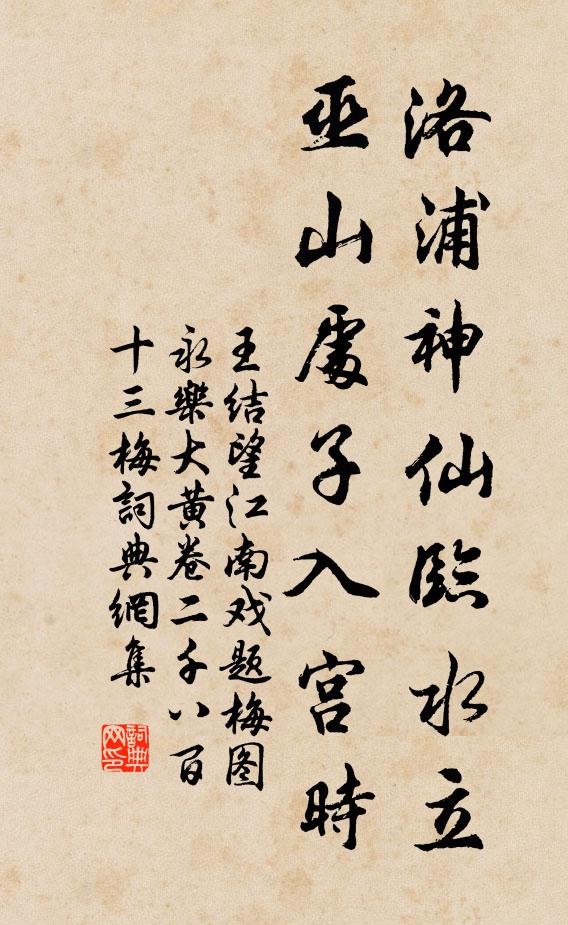 洛浦神仙臨水立
巫山處子入宫時
王结望江南戏题梅图
永樂大黄卷二千八百
十三梅詞典網集
詞典网印